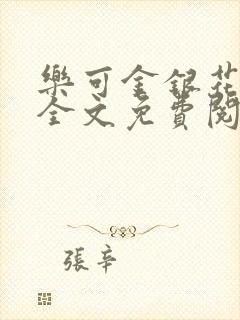 樂可金銀花
全文免費閱
張辛